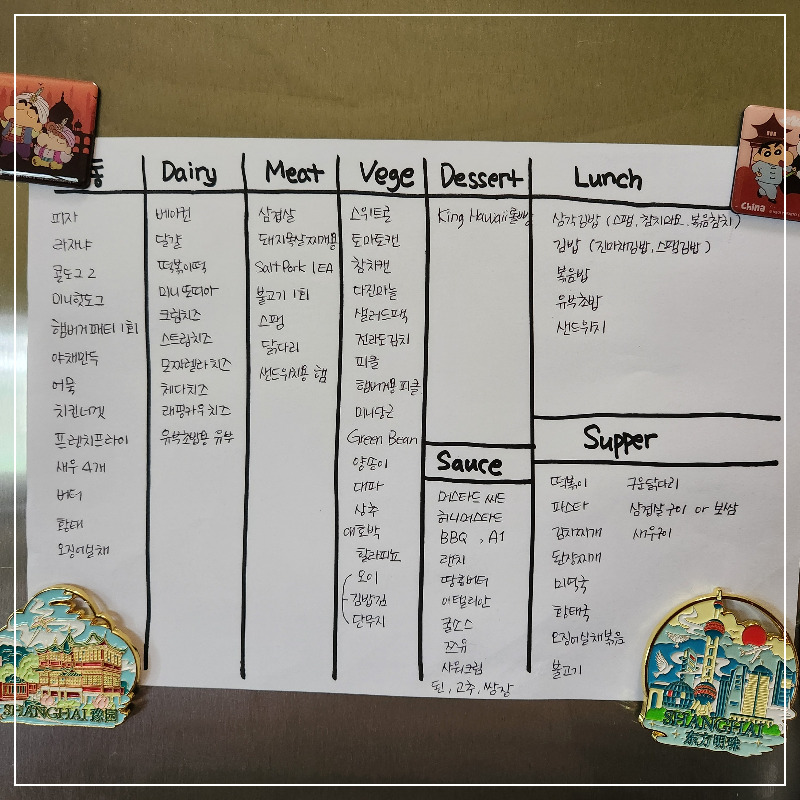 동
피자
라자냐
콜도그 2
미니핫도그
햄버거패티 1회
야채만두
어묵
치킨너겟
프렌치프라이
새우 4개
버터
황태
오징어실채
Dairy
베이컨
달걀
떡볶이떡
미니또띠아
크림치즈
스트링치즈
모짜렐라 치즈
체다치즈
래핑카우 치즈
유부초밥용 유부
Meat
삼겹살
돼지목살찌개용
Salt Pork 1 EA
불고기 1회
스팸
닭다리
샌드위치용 햄
Vege
스위트콘
토마토캔
참치캔
다진마늘
샐러드팩
전라도김치
피클
햄버거용 피클
미니당근
Green Bean
양송이
대파
상추
애호박
할라피뇨
오이
김밥김
단무지
Dessert
King Hawaii롤빵
Sauce
머스타드 씨드
허니머스타드
BBQ , A1
랜치
땅콩버터
이탈리안
굴소스
쯔유
사워크림
된, 고추, 쌈장
Lunch
삼각김밥 (스팸, 참치마요, 볶음참치)
김밥 (진미채김밥, 스팸김밥)
볶음밥
유부초밥
샌드위치
Supper
떡볶이
파스타
김치찌개
된장찌개
미역국
황태국
오징어실채볶음
불고기
구운닭다리
삼겹살구이 or 보쌈
새우구이
China
SHANGHAI 豫园
SHANGHAI
东方明珠